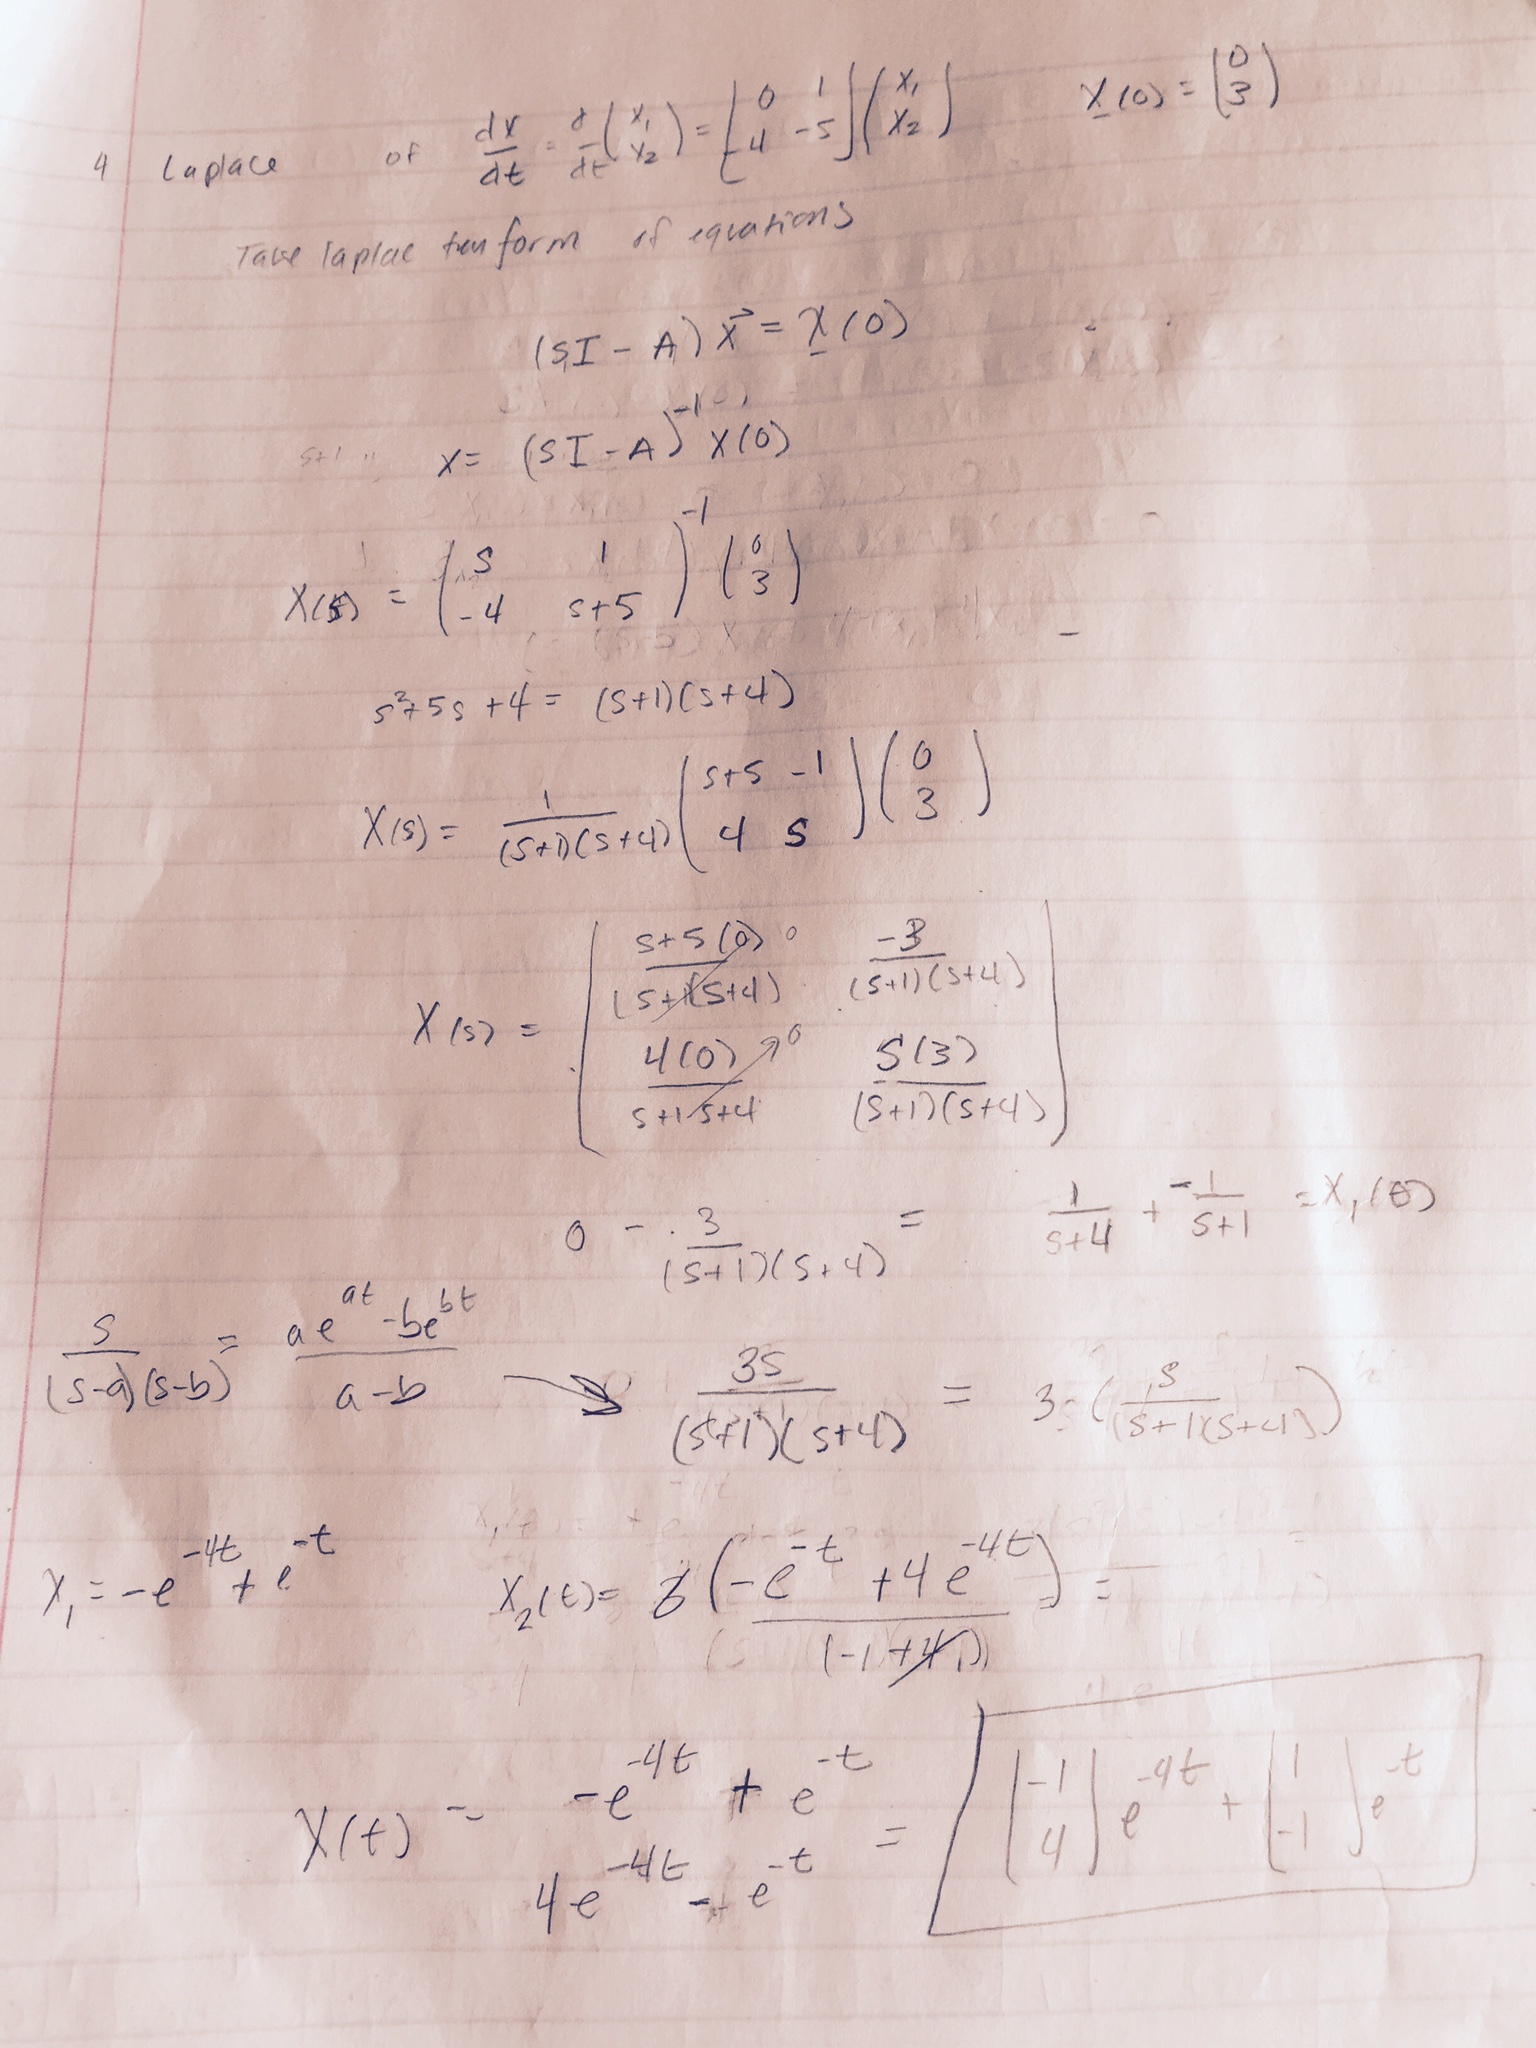 4 Laplace of dx/dt = d/dt (x₁ x₂) = [0 1 -4 -5] (x₁ x₂) x(0) = (0 3)
Take laplae tranform of equations
(sI - A) x⃗ = x(0)
x = (SI - A)⁻¹ x(0)
X(s) = (s 1 -4 s+5)⁻¹ (0 3)
s²+5s +4 = (s+1)(s+4)
X(s) = 1/(s+1)(s+4) (s+5 -1 4 s) (0 3)
X(s) = (s+5(0)/(s+1)(s+4) 0 -3/(s+1)(s+4)
4(0)/s+1 s+4 0 s(3)/(s+1)(s+4))
0 - 3/(s+1)(s+4) = 1/(s+4) + -1/(s+1) = X₁(s)
s/(s-a)(s-b) = ae^at - be^bt / a-b → 3s/(s+1)(s+4) = 3 (s/(s+1)(s+4))
x₁ = -e^-4t + e^-t X₂(t) = 3 (-e^-t + 4e^-4t / (-1+4)) =
X(t) = -e^-4t + e^-t
4e^-4t - e^-t = (-1 4) e^-4t + (1 -1) e^-t